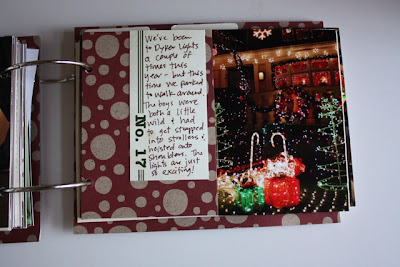 We've been
to Dyker Lights
a couple of
times this
year - but this
time we parked
to walk around.
The boys were
both a little
wild & had
to get strapped
into strollers &
hoisted onto
shoulders. The
lights are just
so exciting!
No. 17